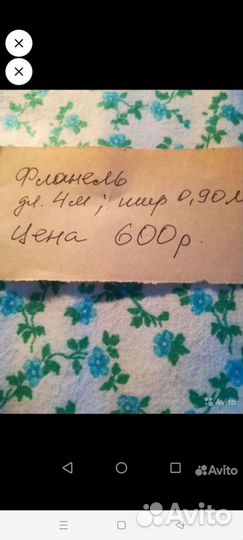 Фланель
дл. 4м; шир 0,90м
Цена 600р.
Avito
Avito
Avito